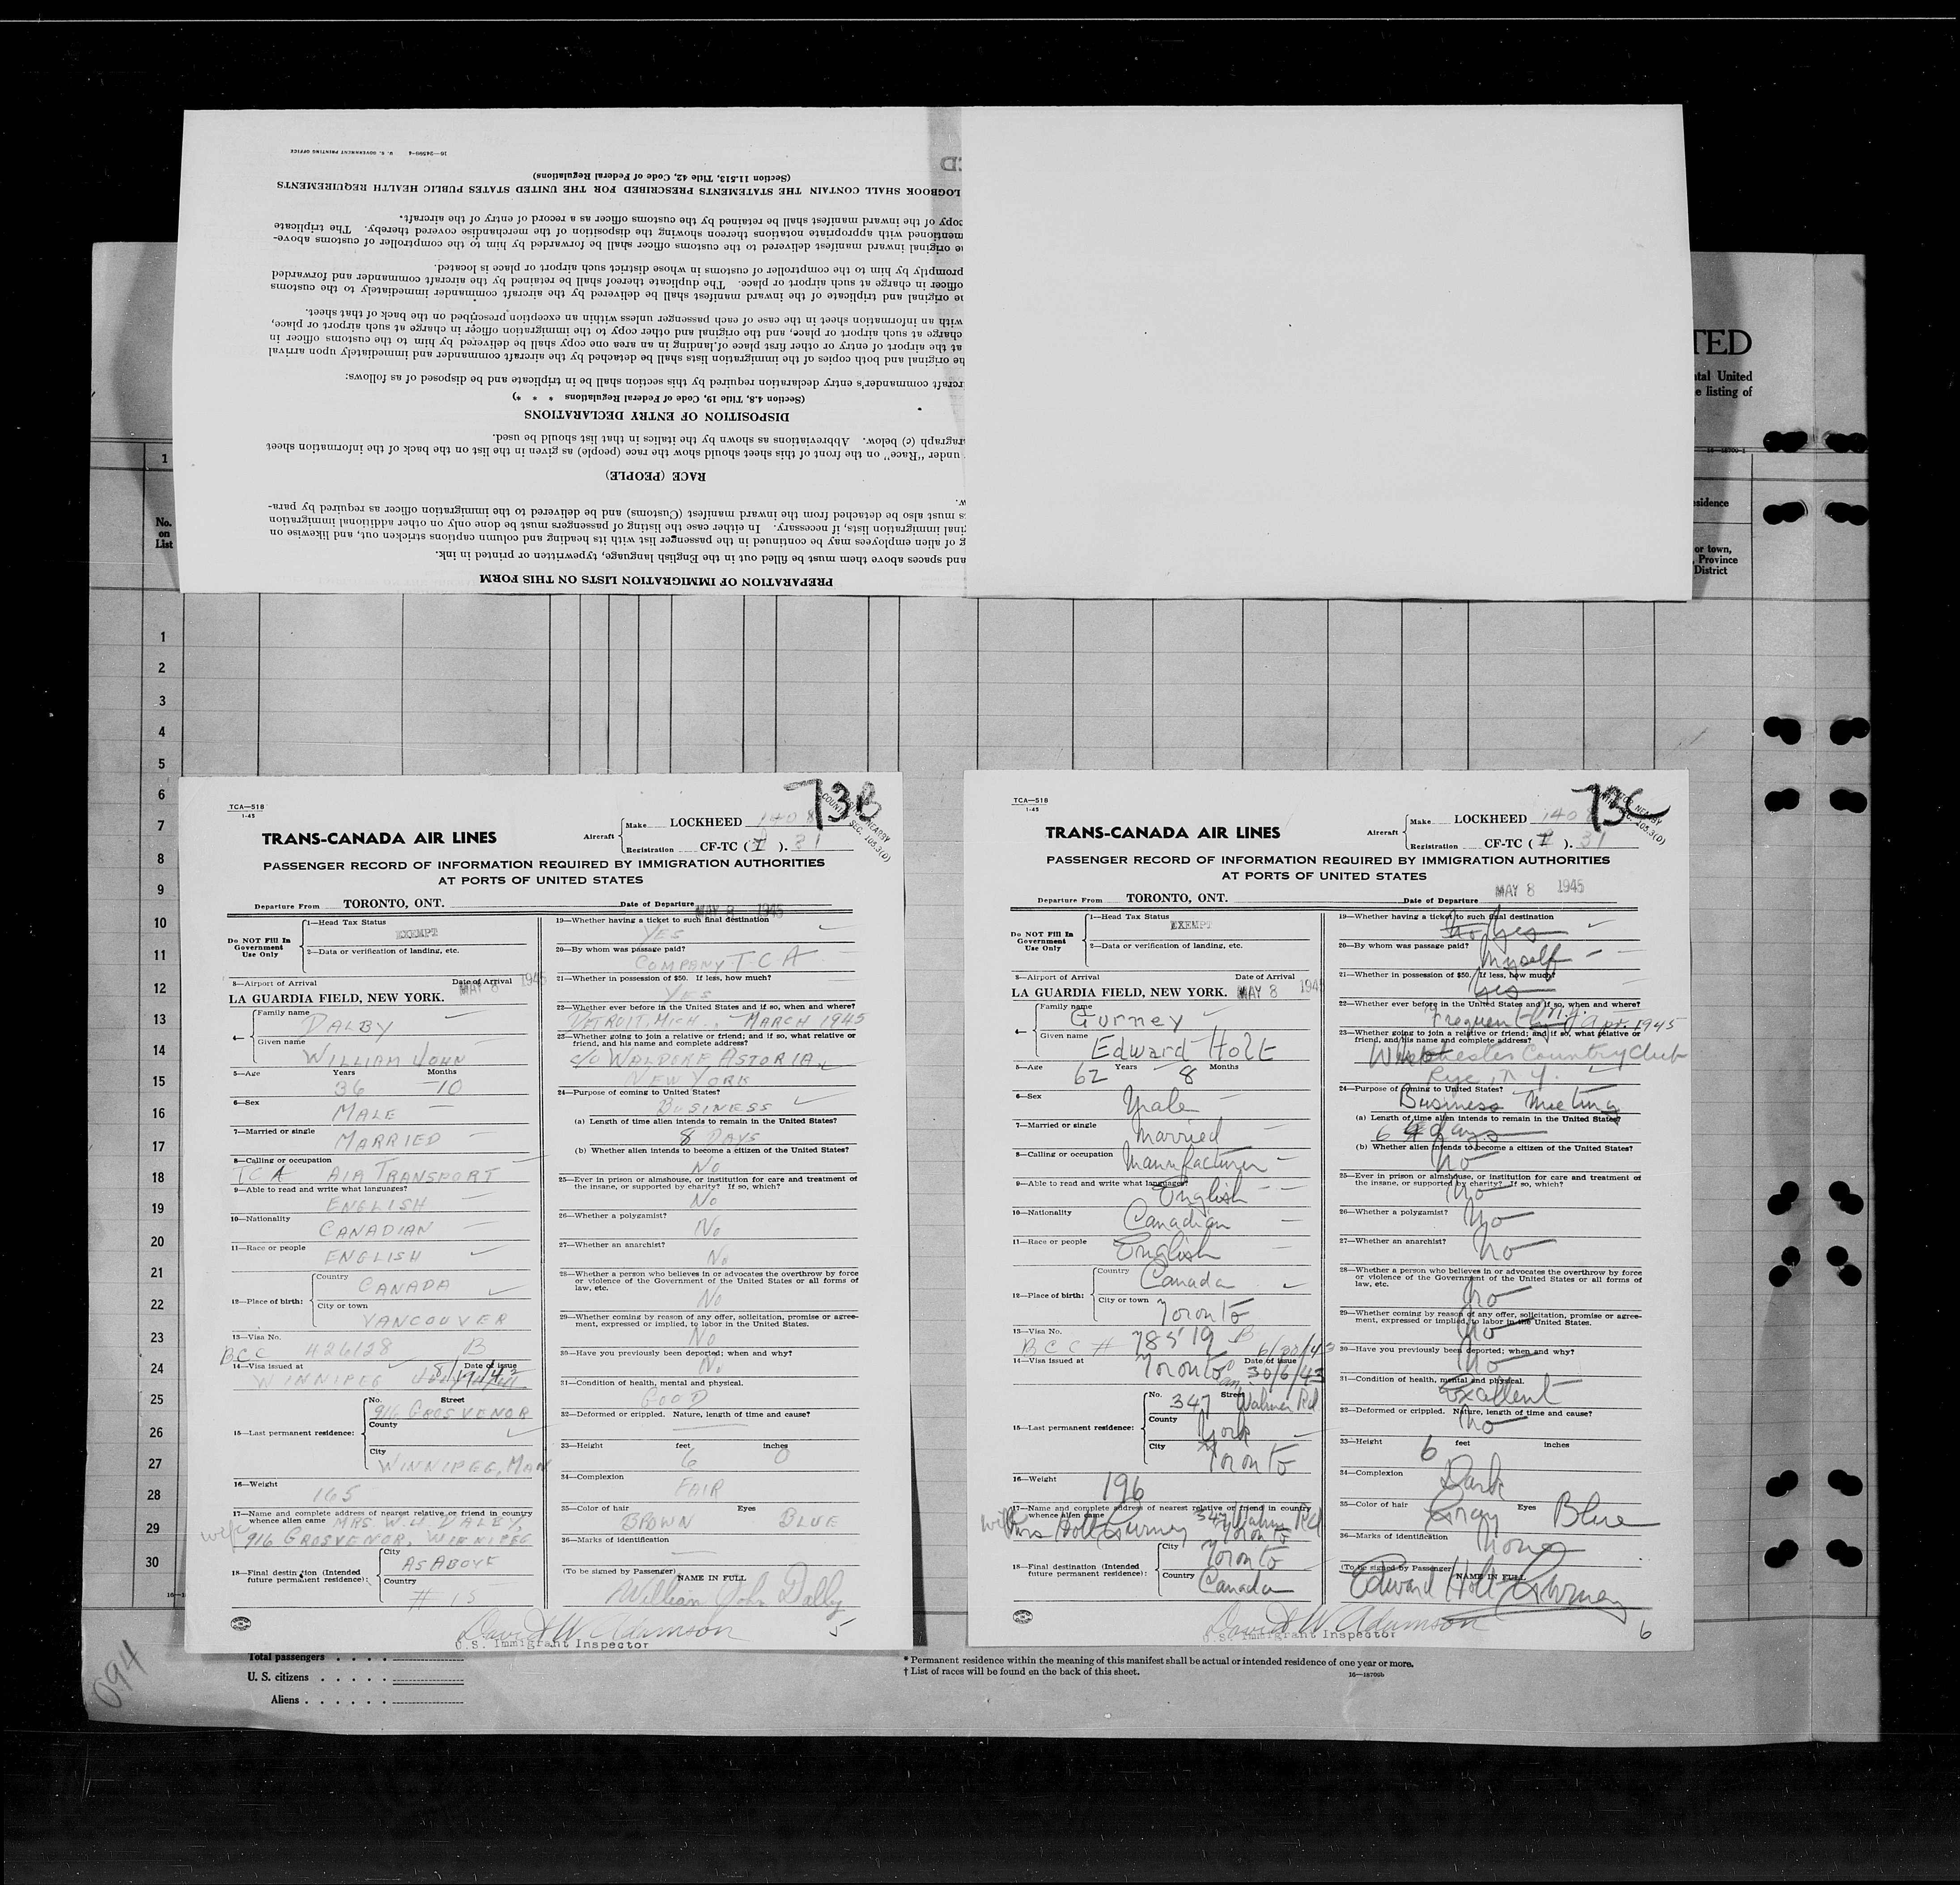 16—24580-4 U. S. GOVERNMENT PRINTING OFFICE
(Section 11.513, Title 42, Code of Federal Regulations)
LOGBOOK SHALL CONTAIN THE STATEMENTS PRESCRIBED FOR THE UNITED STATES PUBLIC HEALTH REQUIREMENTS
copy of the inward manifest shall be retained by the customs officer as a record of entry of the aircraft.
mentioned with appropriate notations thereon showing the disposition of the merchandise covered thereby. The triplicate
original inward manifest delivered to the customs officer shall be forwarded by him to the comptroller of customs above-
promptly by him to the comptroller of customs in whose district such airport or place is located.
officer in charge at such airport or place. The duplicate thereof shall be retained by the aircraft commander and forwarded
original and triplicate of the inward manifest shall be delivered by the aircraft commander immediately to the customs
with an information sheet in the case of each passenger unless within an exception prescribed on the back of that sheet.
charge at such airport or place, and the original and other copy to the immigration officer in charge at such airport or place,
at the airport of entry or other first place of landing in an area one copy shall be delivered by him to the customs officer in
original and both copies of the immigration lists shall be detached by the aircraft commander and immediately upon arrival
commander's entry declaration required by this section shall be in triplicate and be disposed of as follows:
(Section 4.8, Title 19, Code of Federal Regulations * * *)
DISPOSITION OF ENTRY DECLARATIONS
(c) below. Abbreviations as shown by the italics in that list should be used.
under "Race" on the front of this sheet should show the race (people) as given in the list on the back of the information sheet
RACE (PEOPLE)
must also be detached from the inward manifest (Customs) and be delivered to the immigration officer as required by para-
immigration lists, if necessary. In either case the listing of passengers must be done only on other additional immigration
of alien employees may be continued in the passenger list with its heading and column captions stricken out, and likewise on
and spaces above them must be filled out in the English language, typewritten or printed in ink.
PREPARATION OF IMMIGRATION LISTS ON THIS FORM
TED
United
listing of
or town,
Province
District
1
No.
on
List
1
2
3
4
5
6
7
8
9
10
11
12
13
14
15
16
17
18
19
20
21
22
23
24
25
26
27
28
29
30
TCA—518
1-45
73B
TRANS-CANADA AIR LINES
Aircraft
Make LOCKHEED 1408
Registration CF-TC (I). 31
PASSENGER RECORD OF INFORMATION REQUIRED BY IMMIGRATION AUTHORITIES
AT PORTS OF UNITED STATES
Departure From TORONTO, ONT.
Date of Departure MAY 8 1945
Do NOT Fill In
Government
Use Only
1—Head Tax Status
EXEMPT
2—Data or verification of landing, etc.
3—Airport of Arrival Date of Arrival
LA GUARDIA FIELD, NEW YORK. MAY 8 1945
4—
Family name
DALBY
Given name
WILLIAM JOHN
5—Age Years Months
36 10
6—Sex
MALE
7—Married or single
MARRIED
8—Calling or occupation
TCA AIR TRANSPORT
9—Able to read and write what languages?
ENGLISH
10—Nationality
CANADIAN
11—Race or people
ENGLISH
12—Place of birth:
Country
CANADA
City or town
VANCOUVER
13—Visa No.
BCC 426128 B
14—Visa issued at Date of issue
WINNIPEG
15—Last permanent residence:
No. Street
916 GROSVENOR
County
City
WINNIPEG, MAN
16—Weight
165
17—Name and complete address of nearest relative or friend in country
whence alien came MRS. W. J. DALBY,
wife 916 GROSVENOR, WINNIPEG
18—Final destination (Intended
future permanent residence):
City
AS ABOVE
Country
# 15
19—Whether having a ticket to such final destination
YES
20—By whom was passage paid?
COMPANY T C A
21—Whether in possession of $50. If less, how much?
YES
22—Whether ever before in the United States and if so, when and where?
DETROIT, MICH., MARCH 1945
23—Whether going to join a relative or friend; and if so, what relative or
friend, and his name and complete address?
c/o WALDORF ASTORIA
NEW YORK
24—Purpose of coming to United States?
BUSINESS
(a) Length of time alien intends to remain in the United States?
8 DAYS
(b) Whether alien intends to become a citizen of the United States?
No
25—Ever in prison or almshouse, or institution for care and treatment of
the insane, or supported by charity? If so, which?
No
26—Whether a polygamist?
No
27—Whether an anarchist?
No
28—Whether a person who believes in or advocates the overthrow by force
or violence of the Government of the United States or all forms of
law, etc.
No
29—Whether coming by reason of any offer, solicitation, promise or agree-
ment, expressed or implied, to labor in the United States.
No
30—Have you previously been deported; when and why?
No
31—Condition of health, mental and physical.
GOOD
32—Deformed or crippled. Nature, length of time and cause?
33—Height feet inches
6 0
34—Complexion
FAIR
35—Color of hair Eyes
BROWN BLUE
36—Marks of identification
(To be signed by Passenger)
NAME IN FULL
William John Dalby
David W. Adamson
U.S. Immigrant Inspector
5
TCA—518
1-45
73C
TRANS-CANADA AIR LINES
Aircraft
Make LOCKHEED 140
Registration CF-TC (I). 31
PASSENGER RECORD OF INFORMATION REQUIRED BY IMMIGRATION AUTHORITIES
AT PORTS OF UNITED STATES
MAY 8 1945
Departure From TORONTO, ONT. Date of Departure
Do NOT Fill In
Government
Use Only
1—Head Tax Status
EXEMPT
2—Data or verification of landing, etc.
3—Airport of Arrival Date of Arrival
LA GUARDIA FIELD, NEW YORK. MAY 8 194
4—
Family name
Gurney
Given name
Edward Holt
5—Age Years Months
62 8
6—Sex
Male
7—Married or single
Married
8—Calling or occupation
Manufacturer
9—Able to read and write what languages?
English
10—Nationality
Canadian
11—Race or people
English
12—Place of birth:
Country
Canada
City or town
Toronto
13—Visa No.
BCC # 78519 B 6/30/43
14—Visa issued at Date of issue
Toronto 30/6/43
15—Last permanent residence:
No. Street
347 Walmer Rd
County
York
City
Toronto
16—Weight
196
17—Name and complete address of nearest relative or friend in country
whence alien came 347 Walmer Rd
wife Mrs Holt Gurney Toronto
18—Final destination (Intended
future permanent residence):
City
Toronto
Country
Canada
19—Whether having a ticket to such final destination
Yes
20—By whom was passage paid?
Myself
21—Whether in possession of $50. If less, how much?
Yes
22—Whether ever before in the United States and if so, when and where?
Frequently N.Y. Apr. 1945
23—Whether going to join a relative or friend; and if so, what relative or
friend, and his name and complete address?
Westchester Country Club
Rye, N.Y.
24—Purpose of coming to United States?
Business Meeting
(a) Length of time alien intends to remain in the United States?
6 days
(b) Whether alien intends to become a citizen of the United States?
No
25—Ever in prison or almshouse, or institution for care and treatment of
the insane, or supported by charity? If so, which?
No
26—Whether a polygamist?
No
27—Whether an anarchist?
No
28—Whether a person who believes in or advocates the overthrow by force
or violence of the Government of the United States or all forms of
law, etc.
No
29—Whether coming by reason of any offer, solicitation, promise or agree-
ment, expressed or implied, to labor in the United States.
No
30—Have you previously been deported; when and why?
No
31—Condition of health, mental and physical.
Excellent
32—Deformed or crippled. Nature, length of time and cause?
No
33—Height feet inches
6
34—Complexion
Dark
35—Color of hair Eyes
Gray Blue
36—Marks of identification
None
(To be signed by Passenger)
NAME IN FULL
Edward Holt Gurney
David W. Adamson
U.S. Immigrant Inspector
6
094
Total passengers
U. S. citizens
Aliens
* Permanent residence within the meaning of this manifest shall be actual or intended residence of one year or more.
† List of races will be found on the back of this sheet.
16—18709b